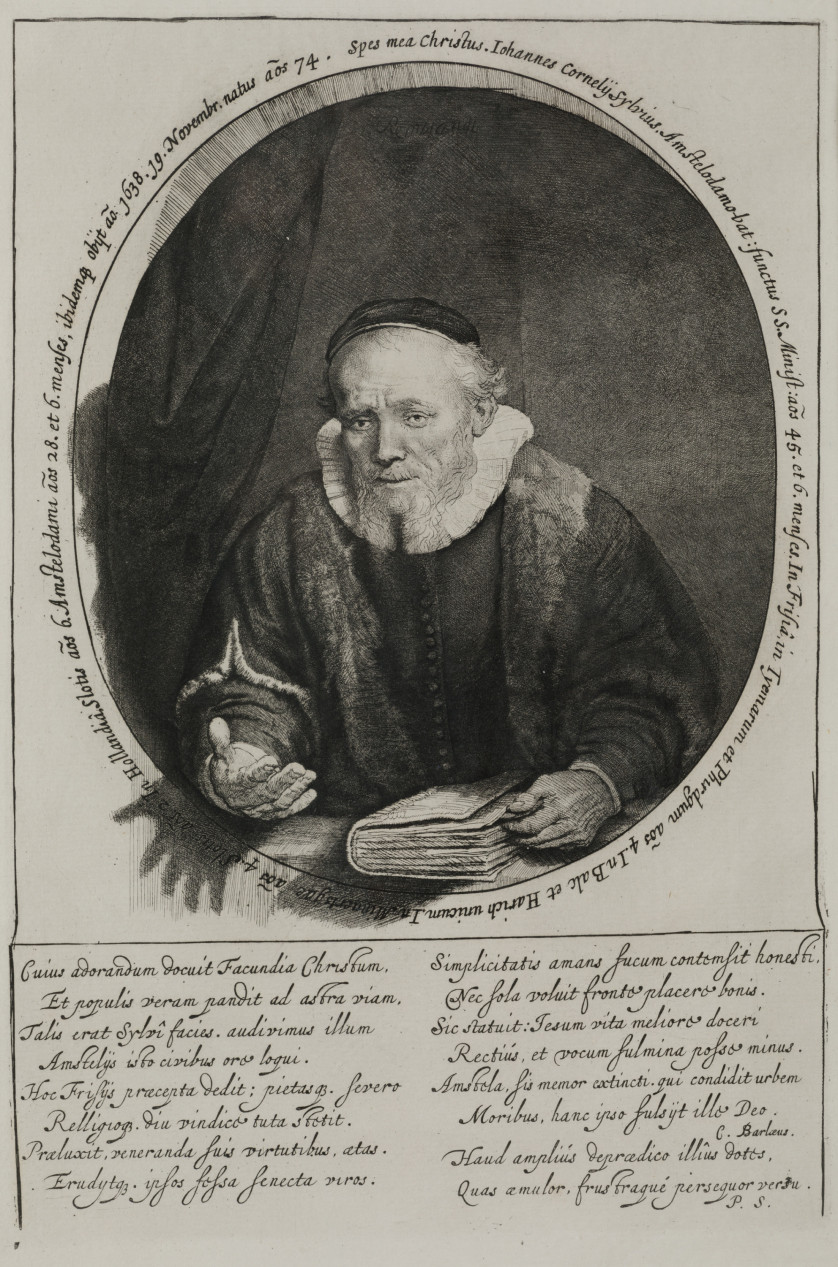 Spes mea Christus. Iohannes Cornelij Sylvius. Amstelodamo-bat: functus S S. Minist: aōs 45. et 6. menses. In Frisiâ, in Tyemarum et Phirdgum aōs 4. In Balc et Harich unicum. In aōs 4. In Hollandiâ, Slotis aōs 6. Amstelodami aōs 28. et 6. menses, ibidemqꝫ obijt aō. 1638. 19. Novembr. natus aōs 74.
Cuius adorandum docuit Facundia Christum,
Et populis veram pandit ad astra viam,
Talis erat Sylvî facies. audivimus illum
Amstelijs isto civibus ore loqui.
Hoc Frisijs præcepta dedit; pietasqꝫ. severo
Relligioqꝫ. diu vindice tuta stetit.
Præluxit, veneranda suis virtutibus, ætas.
Erudytqꝫ. ipsos fessa senecta viros.
Simplicitatis amans fucum contemsit honesti,
Nec sola voluit fronte placere bonis.
Sic statuit: Jesum vita meliore doceri
Rectiús, et vocum fulmina posse minus.
Amstela, sis memor extincti. qui condidit urbem
Moribus, hanc ipso fulsijt ille Deo.
C. Barlæus.
Haud ampliús deprædico illîus dotes,
Quas æmulor, frustraqué persequor versu.
P. S.